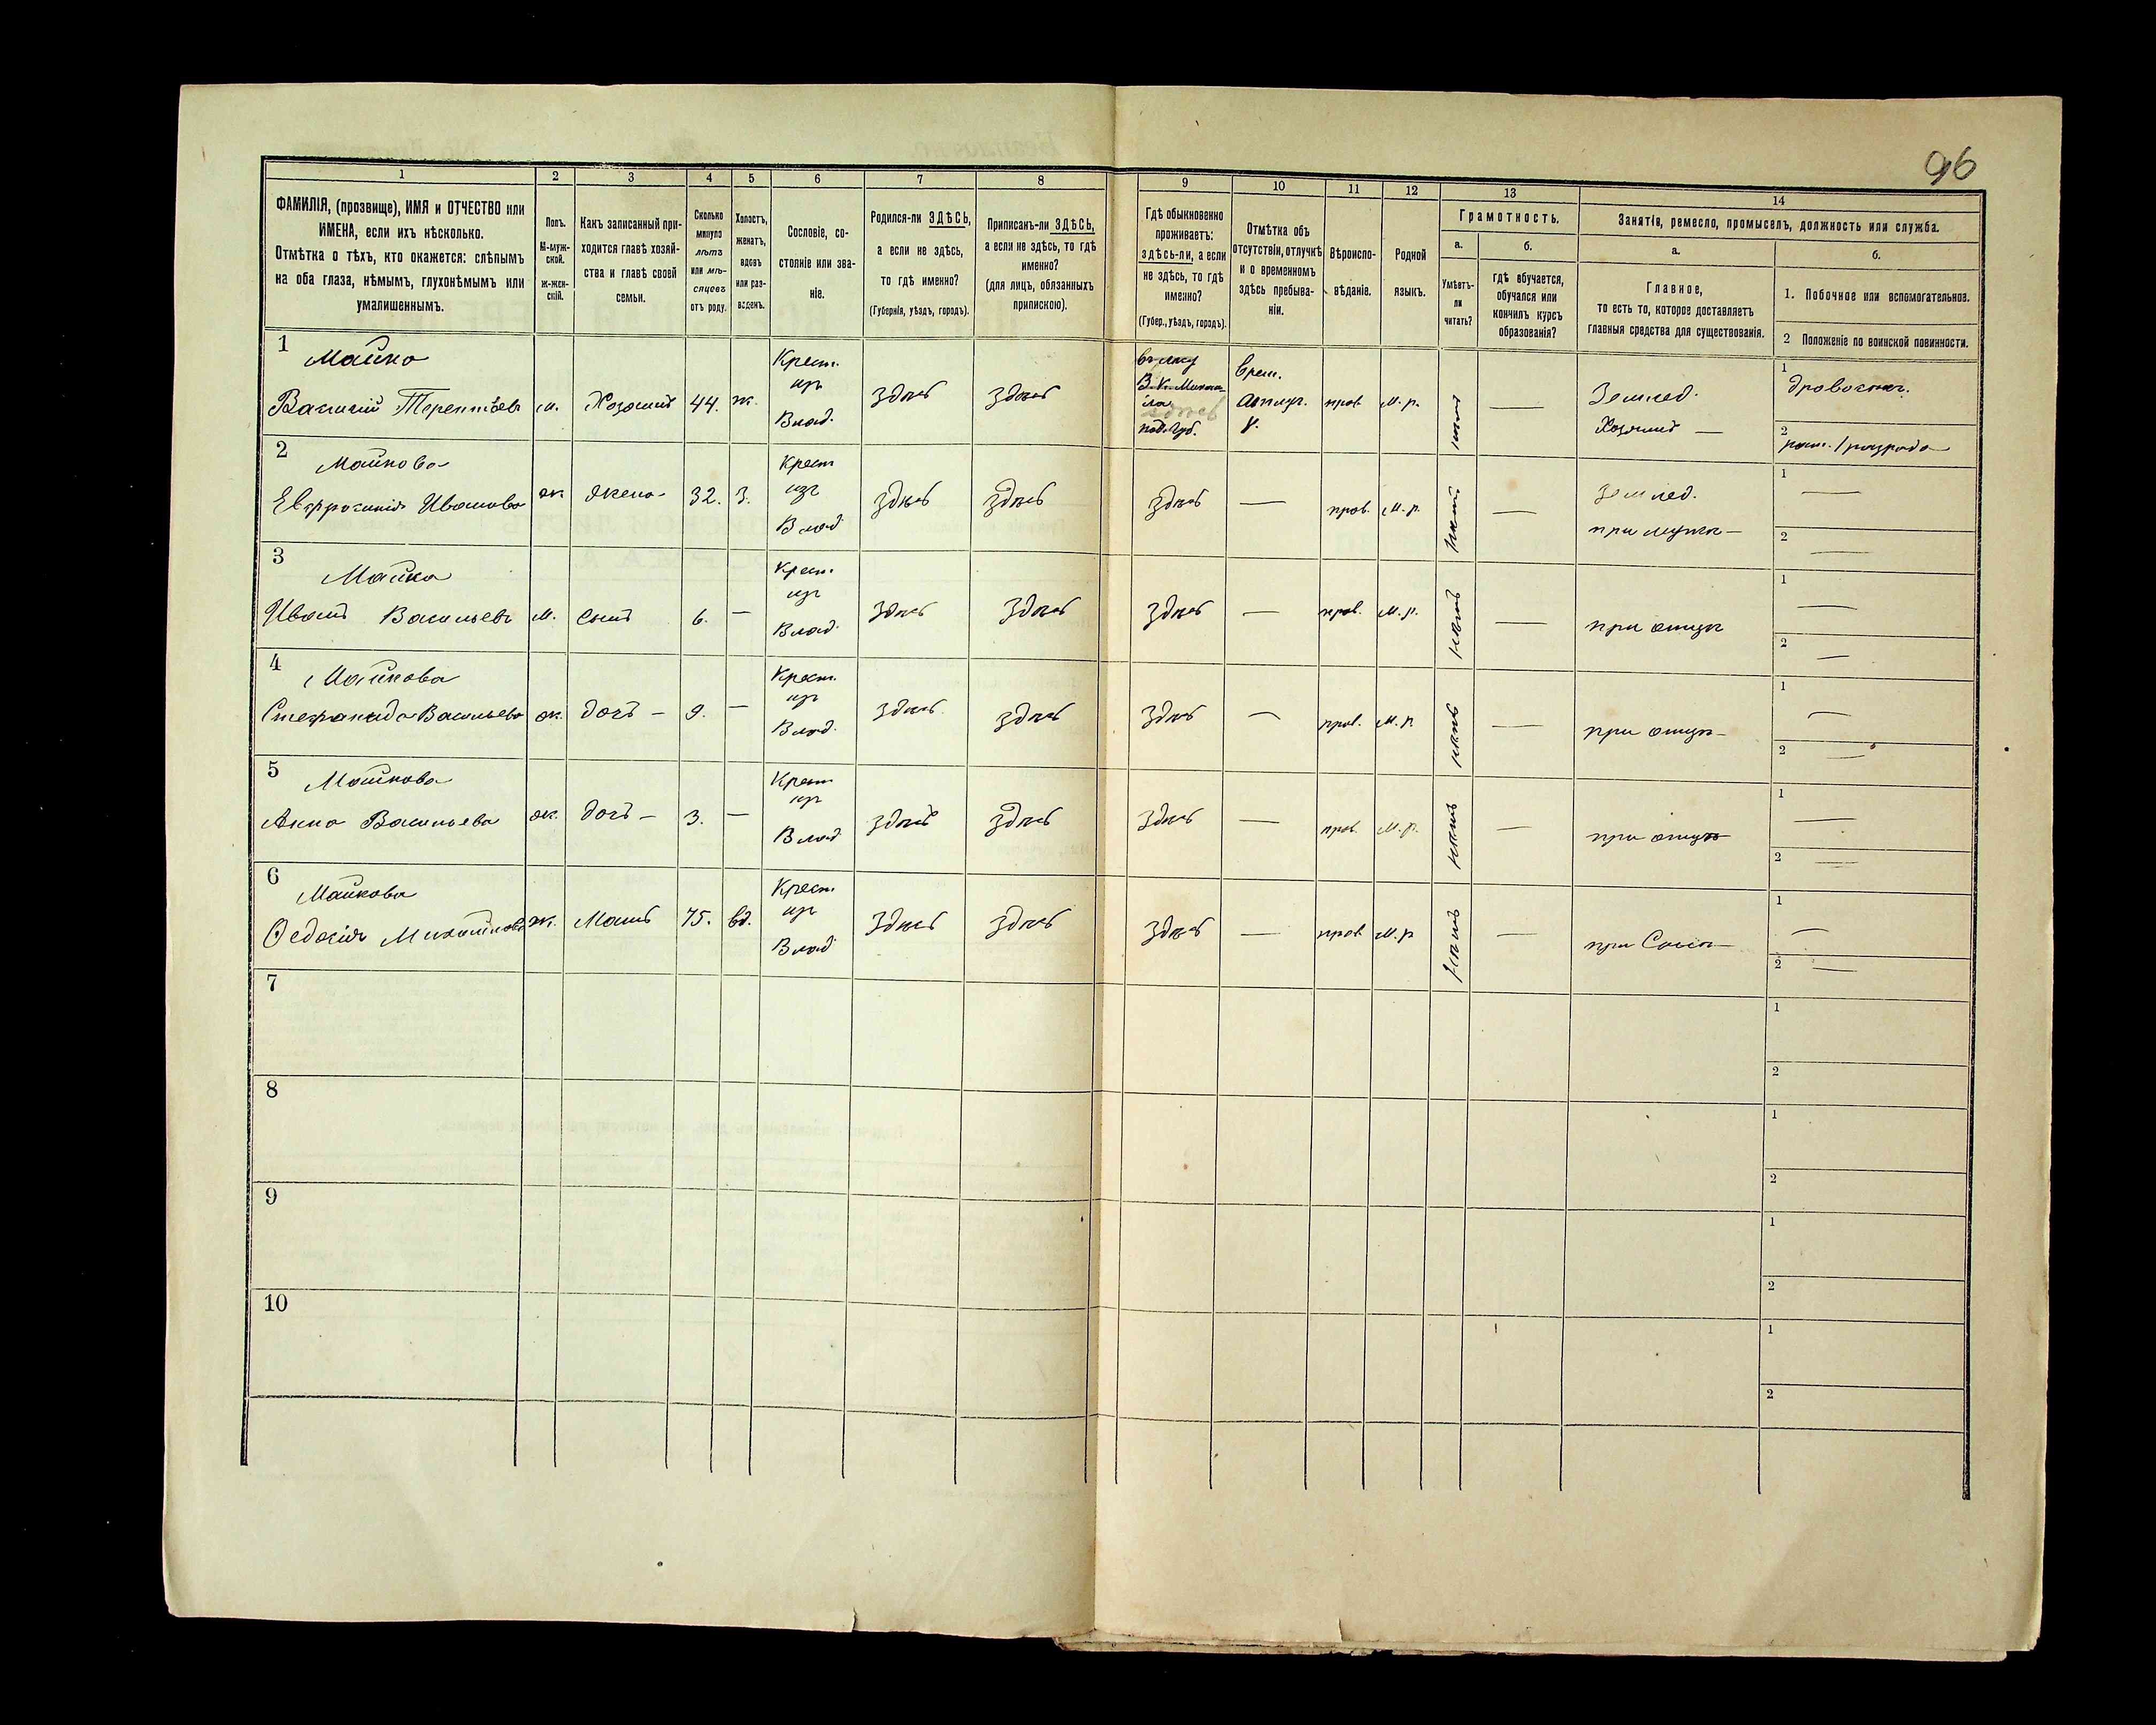 96
1
2
3
4
5
6
7
8
9
10
11
12
13
14
ФАМИЛІЯ, (прозвище), ИМЯ и ОТЧЕСТВО или
ИМЕНА, если ихъ нѣсколько.
Отмѣтка о тѣхъ, кто окажется: слѣпымъ
на оба глаза, нѣмымъ, глухонѣмымъ или
умалишеннымъ.
Полъ.
М-муж-
ской.
ж-жен-
скій.
Какъ записанный при-
ходится главѣ хозяй-
ства и главѣ своей
семьи.
Сколько
минуло
лѣтъ
или мѣ-
сяцевъ
отъ роду.
Холостъ,
женатъ,
вдовъ
или раз-
веденъ.
Сословіе, со-
стояніе или зва-
ніе.
Родился-ли ЗДѢСЬ,
а если не здѣсь,
то гдѣ именно?
(Губернія, уѣздъ, городъ).
Приписанъ-ли ЗДѢСЬ,
а если не здѣсь, то гдѣ
именно?
(для лицъ, обязанныхъ
припискою).
Гдѣ обыкновенно
проживаетъ:
здѣсь-ли, а если
не здѣсь, то гдѣ
именно?
(Губер., уѣздъ, городъ).
Отмѣтка объ
отсутствіи, отлучкѣ
и о временномъ
здѣсь пребыва-
ніи.
Вѣроиспо-
вѣданіе.
Родной
языкъ.
Грамотность.
а.
б.
Умѣетъ-
ли
читать?
гдѣ обучается,
обучался или
кончилъ курсъ
образованія?
Занятія, ремесло, промыселъ, должность или служба.
а.
б.
Главное,
то есть то, которое доставляетъ
главныя средства для существованія.
1. Побочное или вспомогательное.
2 Положеніе по воинской повинности.
1
Майко
Василий Терентьевъ м. Хозяинъ 44. ж.
Крест.
изъ
Влад.
здѣсь здѣсь
здѣсь
Врем.
пров. м.р. нѣтъ —
Землед.
Хозяинъ —
1
2
2
Майкова
Евфросинія Иванова ж жена 32. З.
Крест
изъ
Влад
здѣсь здѣсь здѣсь — пров. м.р. нѣтъ —
землед.
при мужѣ —
1 —
2 —
3
Майко
Иванъ Васильевъ м. сынъ 6. —
Крест.
изъ
Влад.
здѣсь здѣсь здѣсь — пров. м.р. нѣтъ — при отцѣ
1 —
2 —
4
Майкова
Степанида Васильева ж. дочь — 9. —
Крест.
изъ
Влад.
здѣсь здѣсь здѣсь — пров. м.р. нѣтъ — при отцѣ —
1 —
2 —
5
Майкова
Анна Васильева ж. дочь — 3. —
Крест
изъ
Влад
здѣсь здѣсь здѣсь — пров. м.р. нѣтъ — при отцѣ
1 —
2 —
6
Майкова
Ѳедосія Михайлова ж. Мать 75. вд.
Крест.
изъ
Влад
здѣсь здѣсь здѣсь — пров. м.р нѣтъ — при Сынѣ —
1 —
2 —
7
1
2
8
1
2
9
1
2
10
1
2